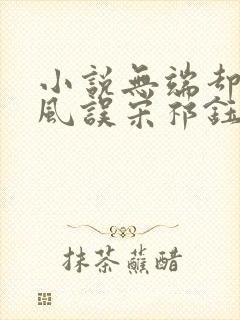 小說無端卻
風誤宋祁鈺
抹茶蘸醋